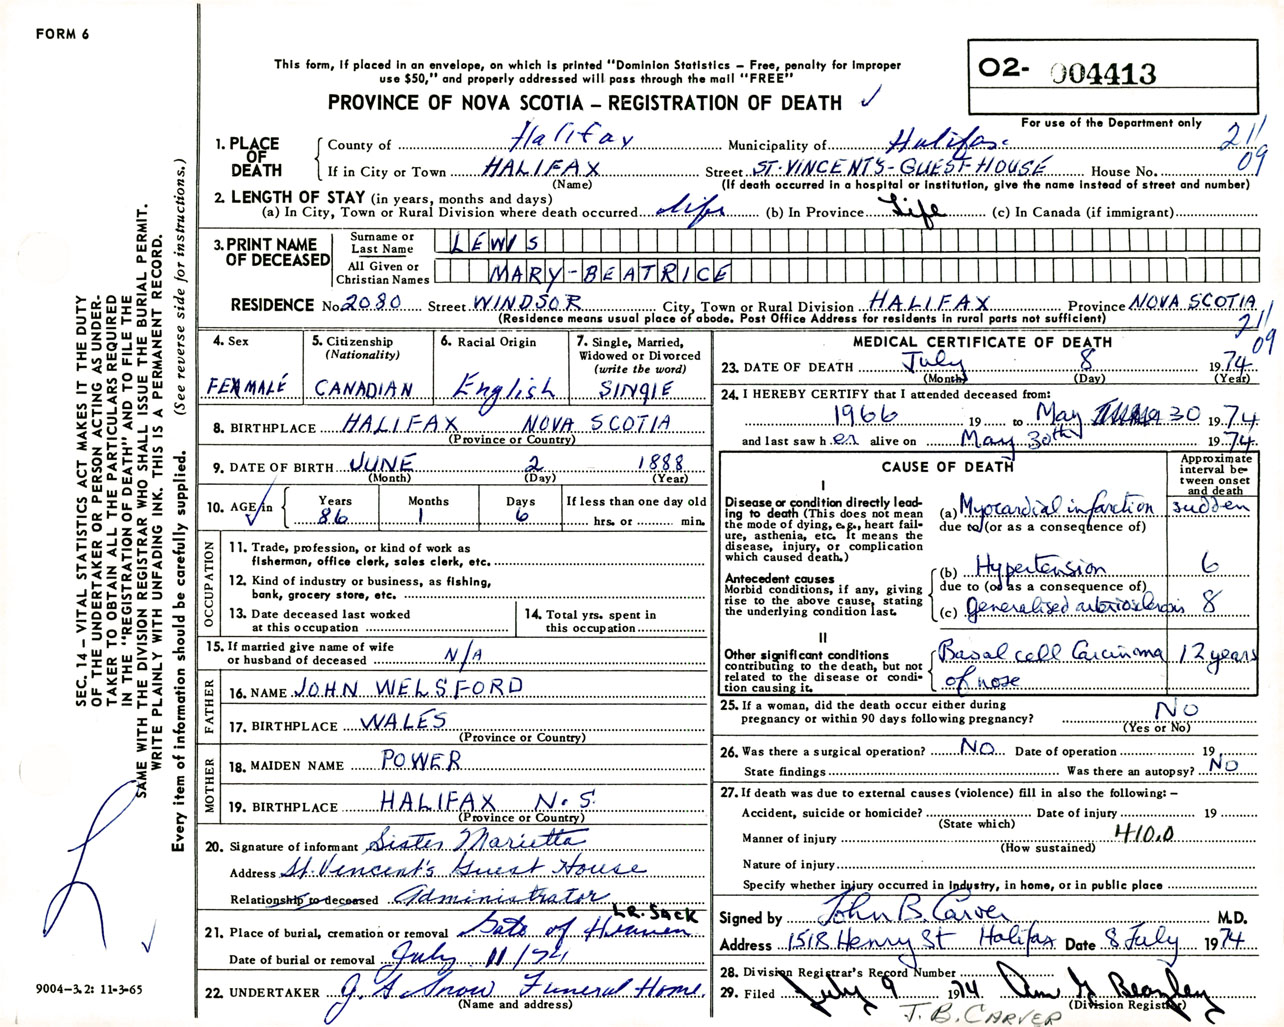 FORM 6
This form, if placed in an envelope, on which is printed "Dominion Statistics – Free, penalty for improper
use $50," and properly addressed will pass through the mail "FREE"
PROVINCE OF NOVA SCOTIA – REGISTRATION OF DEATH ✓
O2- 004413
For use of the Department only
211
09
1. PLACE OF DEATH
County of Halifax Municipality of Halifax
If in City or Town HALIFAX Street ST-VINCENTS-GUEST HOUSE House No.
(Name) (If death occurred in a hospital or institution, give the name instead of street and number)
2. LENGTH OF STAY (in years, months and days)
(a) In City, Town or Rural Division where death occurred life (b) In Province Life (c) In Canada (if immigrant)
3. PRINT NAME OF DECEASED
Surname or Last Name LEWIS
All Given or Christian Names MARY-BEATRICE
RESIDENCE No. 2080 Street WINDSOR City, Town or Rural Division HALIFAX Province NOVA SCOTIA
(Residence means usual place of abode. Post Office Address for residents in rural parts not sufficient)
211
09
4. Sex
FEMALE
5. Citizenship
(Nationality)
CANADIAN
6. Racial Origin
English
7. Single, Married,
Widowed or Divorced
(write the word)
SINGlE
8. BIRTHPLACE HALIFAX NOVA SCOTIA
(Province or Country)
9. DATE OF BIRTH JUNE 2 1888
(Month) (Day) (Year)
10. AGE in ✓
Years Months Days If less than one day old
86 1 6 hrs. or min.
OCCUPATION
11. Trade, profession, or kind of work as
fisherman, office clerk, sales clerk, etc.
12. Kind of industry or business, as fishing,
bank, grocery store, etc.
13. Date deceased last worked
at this occupation
14. Total yrs. spent in
this occupation
15. If married give name of wife
or husband of deceased N/A
FATHER
16. NAME JOHN WELSFORD
17. BIRTHPLACE WALES
(Province or Country)
MOTHER
18. MAIDEN NAME POWER
19. BIRTHPLACE HALIFAX N.S.
(Province or Country)
20. Signature of informant Sister Marietta
Address St. Vincent's Guest House
Relationship to deceased Administrator
LR. SACK
21. Place of burial, cremation or removal Gate of Heaven
Date of burial or removal July 11/74
22. UNDERTAKER J A Snow Funeral Home.
(Name and address)
MEDICAL CERTIFICATE OF DEATH
23. DATE OF DEATH July 8 1974
(Month) (Day) (Year)
24. I HEREBY CERTIFY that I attended deceased from:
1966 19 to May 30 1974
and last saw her alive on May 30th 1974
CAUSE OF DEATH
Approximate
interval be-
tween onset
and death
I
Disease or condition directly lead-
ing to death (This does not mean
the mode of dying, e.g., heart fail-
ure, asthenia, etc. It means the
disease, injury, or complication
which caused death.)
(a) Myocardial infarction sudden
due to (or as a consequence of)
Antecedent causes
Morbid conditions, if any, giving
rise to the above cause, stating
the underlying condition last.
(b) Hypertension 6
due to (or as a consequence of)
(c) generalised arteriosclerosis 8
II
Other significant conditions
contributing to the death, but not
related to the disease or condi-
tion causing it.
Basal cell Carcinoma 12 years
of nose
25. If a woman, did the death occur either during
pregnancy or within 90 days following pregnancy? NO
(Yes or No)
26. Was there a surgical operation? NO Date of operation 19
State findings Was there an autopsy? NO
27. If death was due to external causes (violence) fill in also the following: –
Accident, suicide or homicide? Date of injury 19
(State which)
Manner of injury 410.0
(How sustained)
Nature of injury
Specify whether injury occurred in industry, in home, or in public place
Signed by John B. Carver M.D.
Address 1518 Henry St Halifax Date 8 July 1974
28. Division Registrar's Record Number
29. Filed July 9 1974 Ann G Beazley
(Division Registrar)
J. B. CARVER
SEC. 14 – VITAL STATISTICS ACT MAKES IT THE DUTY
OF THE UNDERTAKER OR PERSON ACTING AS UNDER-
TAKER TO OBTAIN ALL THE PARTICULARS REQUIRED
IN THE "REGISTRATION OF DEATH" AND TO FILE THE
SAME WITH THE DIVISION REGISTRAR WHO SHALL ISSUE THE BURIAL PERMIT.
WRITE PLAINLY WITH UNFADING INK. THIS IS A PERMANENT RECORD.
Every item of information should be carefully supplied. (See reverse side for instructions.)
✓
9004-3.2: 11-3-65